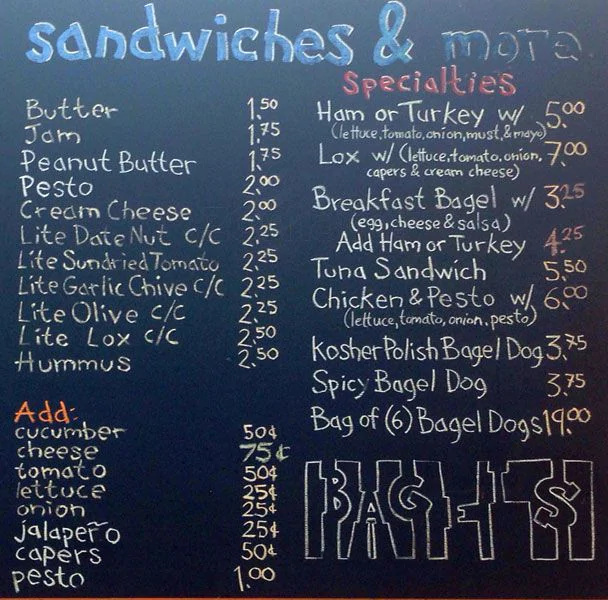 sandwiches & more
Butter 1.50
Jam 1.75
Peanut Butter 1.75
Pesto 2.00
Cream Cheese 2.00
Lite Date Nut c/c 2.25
Lite Sundried Tomato 2.25
Lite Garlic Chive c/c 2.25
Lite Olive c/c 2.25
Lite Lox c/c 2.50
Hummus 2.50
Add:
cucumber 50¢
cheese 75¢
tomato 50¢
lettuce 25¢
onion 25¢
jalapeño 25¢
capers 50¢
pesto 1.00
Specialties
Ham or Turkey w/ 5.00
(lettuce, tomato, onion, must, & mayo)
Lox w/ (lettuce, tomato, onion, 7.00
capers & cream cheese)
Breakfast Bagel w/ 3.25
(egg, cheese & salsa)
Add Ham or Turkey 4.25
Tuna Sandwich 5.50
Chicken & Pesto w/ 6.00
(lettuce, tomato, onion, pesto)
Kosher Polish Bagel Dog 3.75
Spicy Bagel Dog 3.75
Bag of (6) Bagel Dogs 19.00
BAGELS